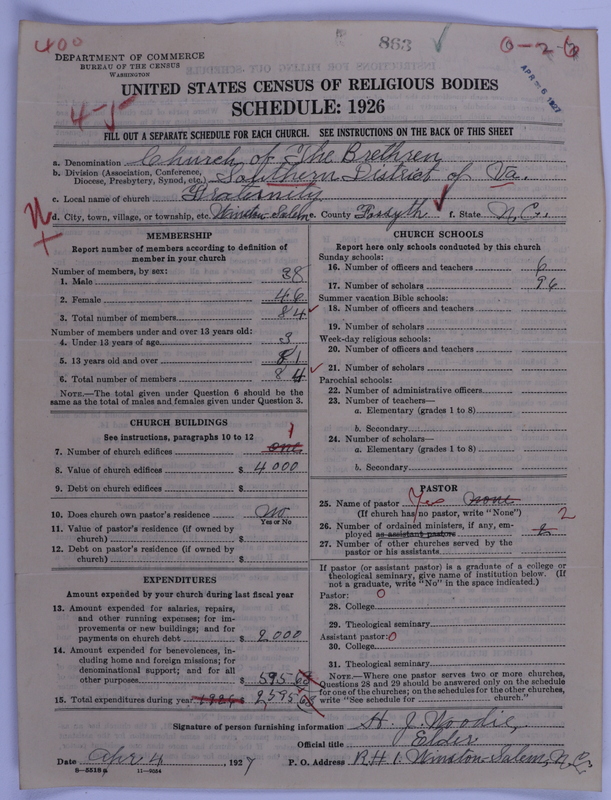 400
863 ✓
0-2-6
APR - 6 1927
4-5
DEPARTMENT OF COMMERCE
BUREAU OF THE CENSUS
WASHINGTON
UNITED STATES CENSUS OF RELIGIOUS BODIES
SCHEDULE: 1926
FILL OUT A SEPARATE SCHEDULE FOR EACH CHURCH. SEE INSTRUCTIONS ON THE BACK OF THIS SHEET
a. Denomination Church of The Brethren
b. Division (Association, Conference, Diocese, Presbytery, Synod, etc.) Southern District of Va.
c. Local name of church Fraternity
d. City, town, village, or township, etc. Winston-Salem e. County Forsyth f. State N.C.
MEMBERSHIP
Report number of members according to definition of member in your church
Number of members, by sex:
1. Male 38
2. Female 46
3. Total number of members 84 ✓
Number of members under and over 13 years old:
4. Under 13 years of age 3
5. 13 years old and over 81
6. Total number of members 84
NOTE.—The total given under Question 6 should be same as the total of males and females given under Question 3.
CHURCH BUILDINGS
See instructions, paragraphs 10 to 12
7. Number of church edifices one 1
8. Value of church edifices $ 4000
9. Debt on church edifices $
10. Does church own pastor's residence No
Yes or No
11. Value of pastor's residence (if owned by church) $
12. Debt on pastor's residence (if owned by church) $
EXPENDITURES
Amount expended by your church during last fiscal year
13. Amount expended for salaries, repairs, and other running expenses; for improvements or new buildings; and for payments on church debt $ 2000
14. Amount expended for benevolences, including home and foreign missions; for denominational support; and for all other purposes $ 595 63
15. Total expenditures during year $ 2595 63
CHURCH SCHOOLS
Report here only schools conducted by this church
Sunday schools:
16. Number of officers and teachers 6
17. Number of scholars 96
Summer vacation Bible schools:
18. Number of officers and teachers
19. Number of scholars
Week-day religious schools:
20. Number of officers and teachers
✓ 21. Number of scholars
Parochial schools:
22. Number of administrative officers
23. Number of teachers—
a. Elementary (grades 1 to 8)
b. Secondary
24. Number of scholars—
a. Elementary (grades 1 to 8)
b. Secondary
PASTOR
25. Name of pastor Yes None
(If church has no pastor, write "None")
26. Number of ordained ministers, if any, employed as assistant pastors 2
27. Number of other churches served by the pastor or his assistants
If pastor (or assistant pastor) is a graduate of a college or theological seminary, give name of institution below. (If not a graduate, write "No" in the space indicated.)
Pastor: 0
28. College
29. Theological seminary
Assistant pastor: 0
30. College
31. Theological seminary
NOTE.—Where one pastor serves two or more churches, Questions 28 and 29 should be answered only on the schedule for one of the churches; on the schedules for the other churches, write "See schedule for church."
Signature of person furnishing information H. J. Woodie
Official title Elder
Date Apr 4, 1927 P. O. Address R.H 1. Winston-Salem, N.C.
11-8684